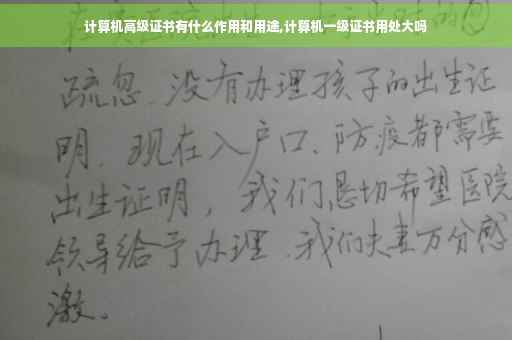 计算机高级证书有什么作用和用途,计算机一级证书用处大吗
疏忽、没有办理孩子的出生证
明、现在入户口、防疫都需要
出生证明，我们恳切希望医院
领导给予办理、我们夫妻万分感
激。